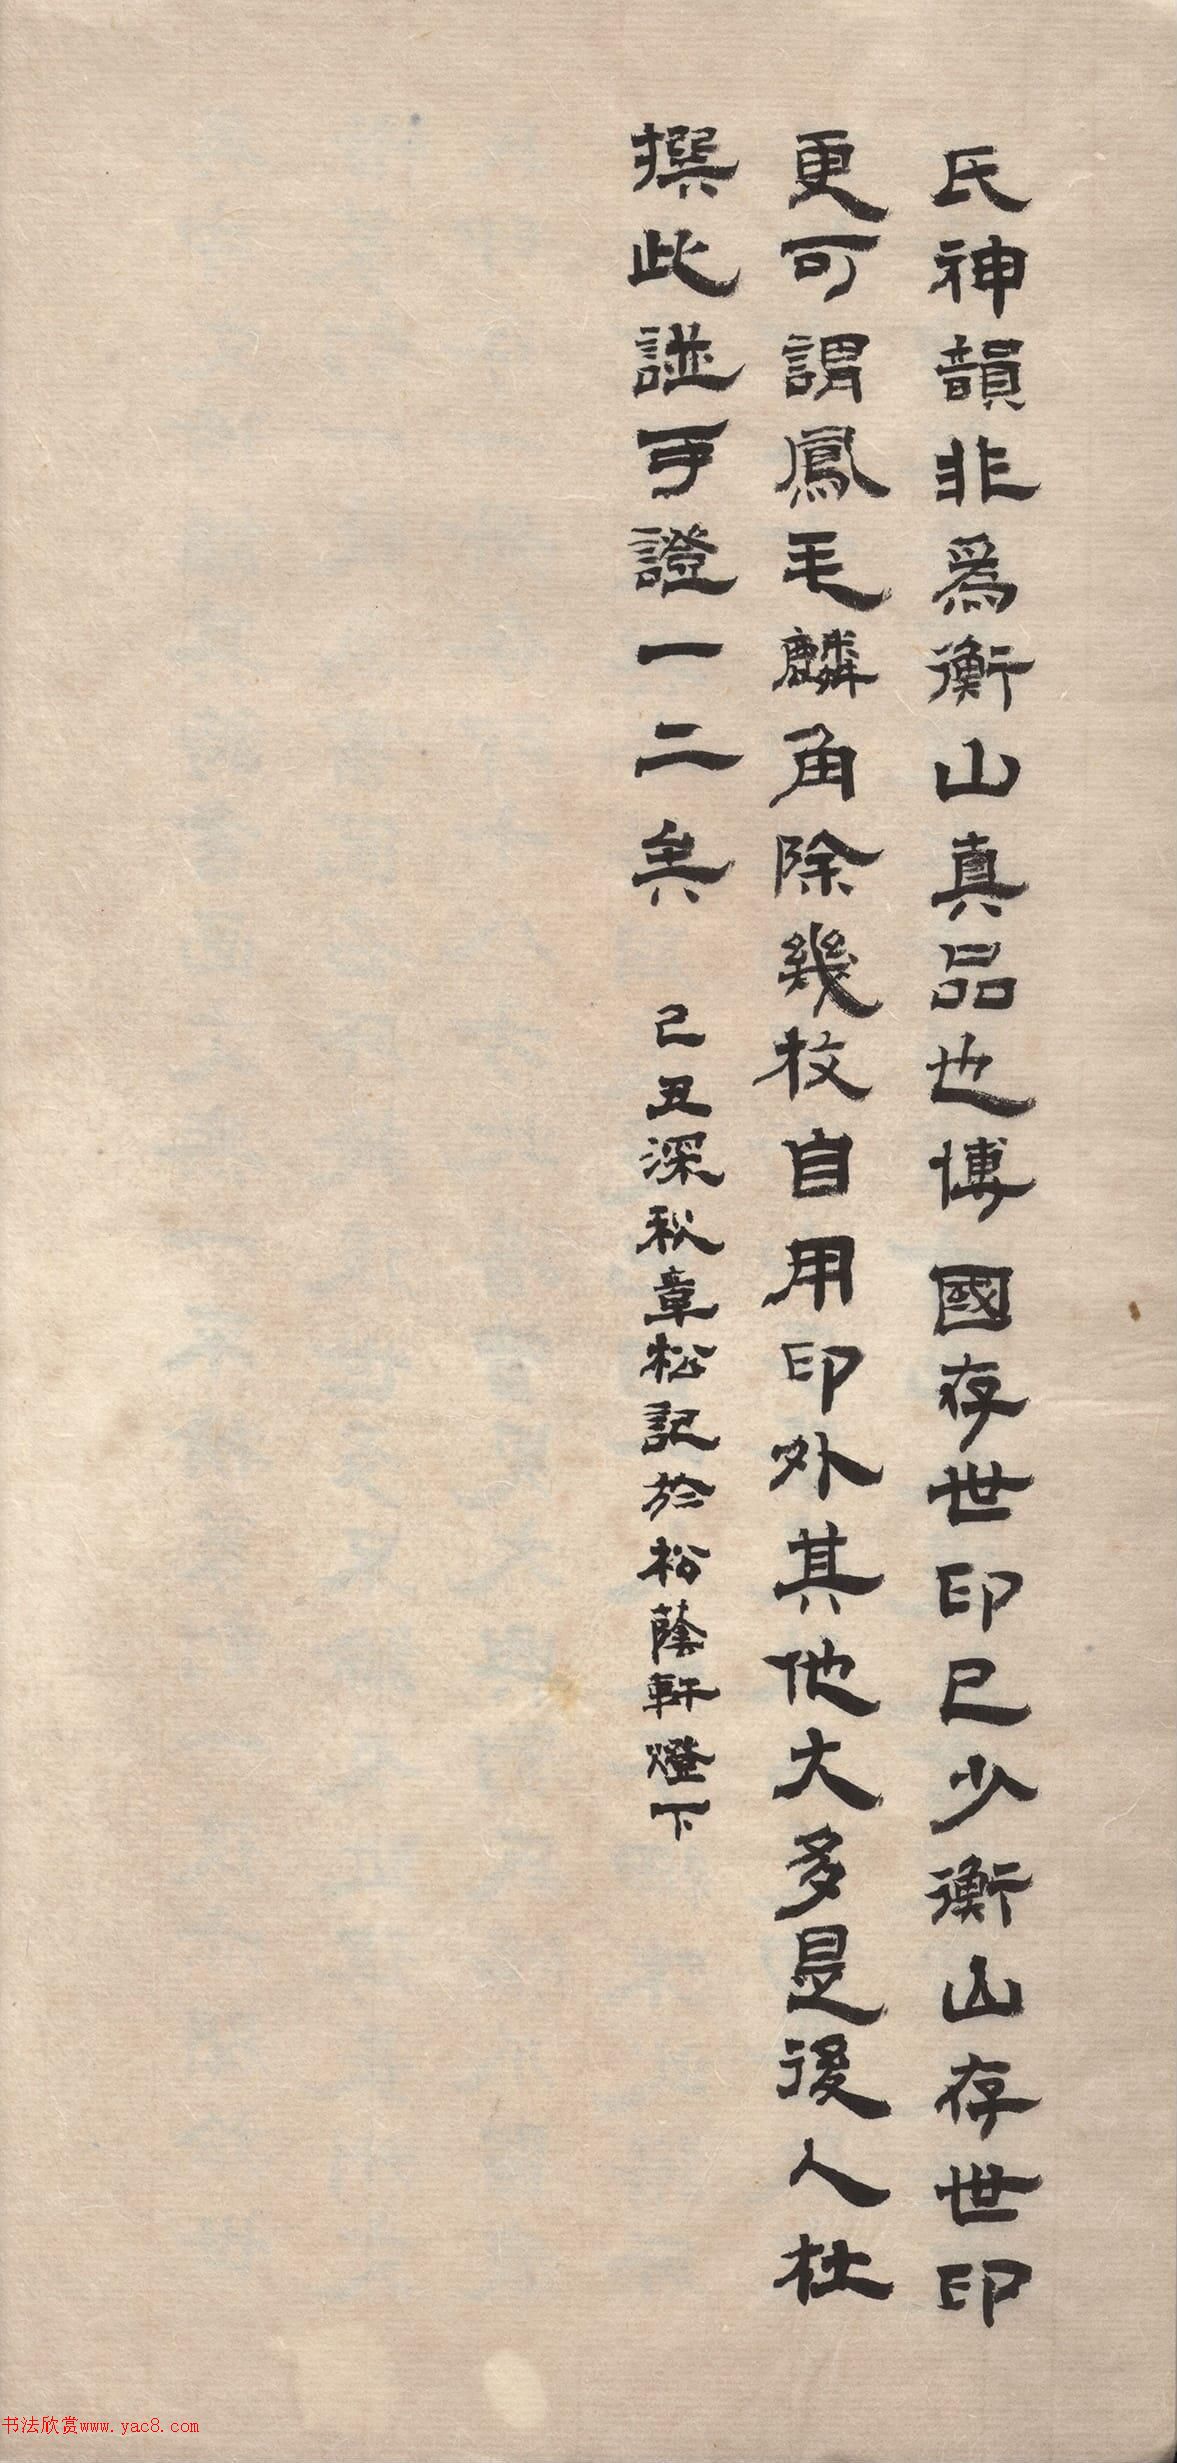 氏神韻非爲衡山真品也博國存世印已少衡山存世印
更可謂鳳毛麟角除幾枚自用印外其他大多是後人杜
撰此譜可證一二矣
己丑深秋章松記於松蔭軒燈下
书法欣赏www.yac8.com